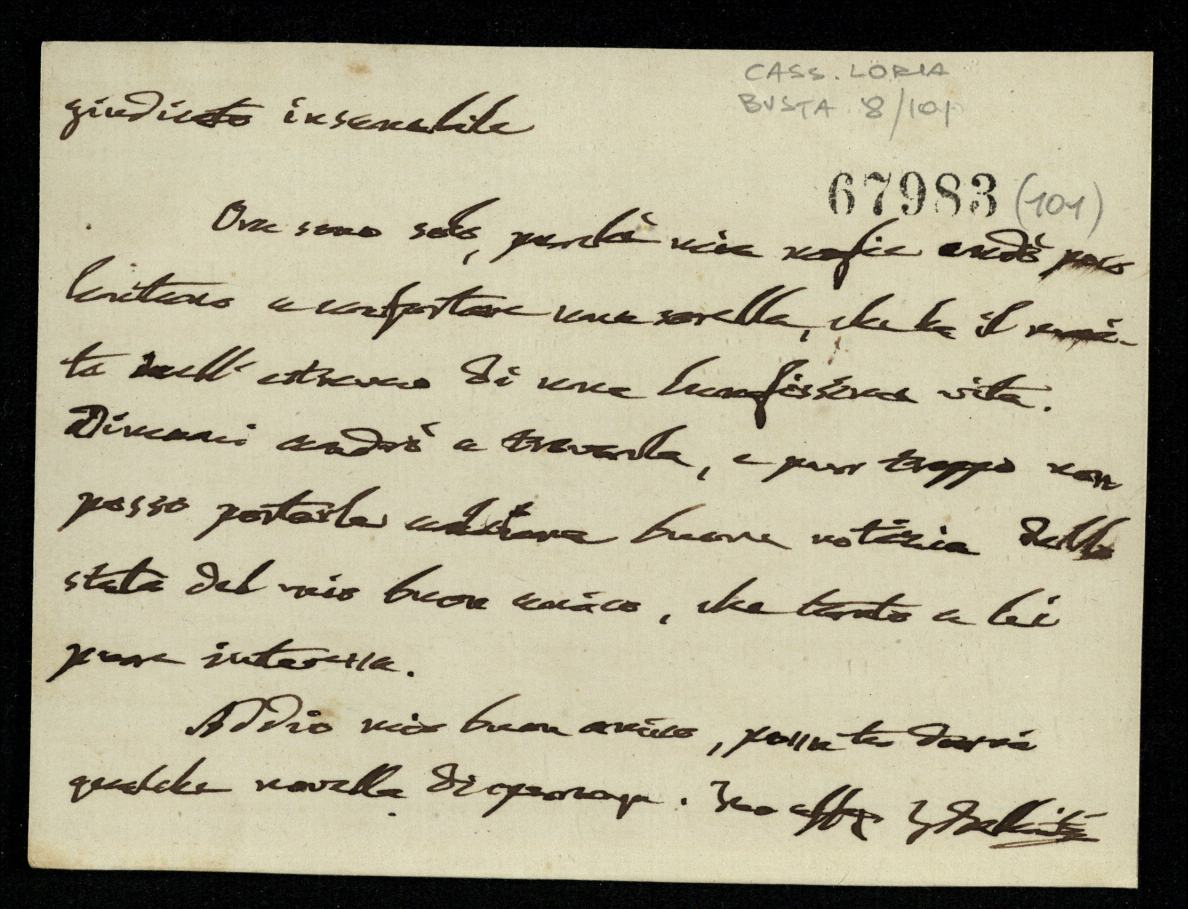 CASS. LORIA
BUSTA 8/101
giudicato insanabile
67983 (101)
Ora sono solo, perchè mia moglie andò poco
lontano a confortare una sorella, che ha il mari-
to nell'estremo di una lunghissima vita.
Dimani andrò a trovarla, e pur troppo non
posso portarle buone notizie dello
stato del mio buon amico, che tanto a lei
pure interessa.
Addio mio buon amico, possa tu darmi
qualche novella di speranza. Tuo affmo